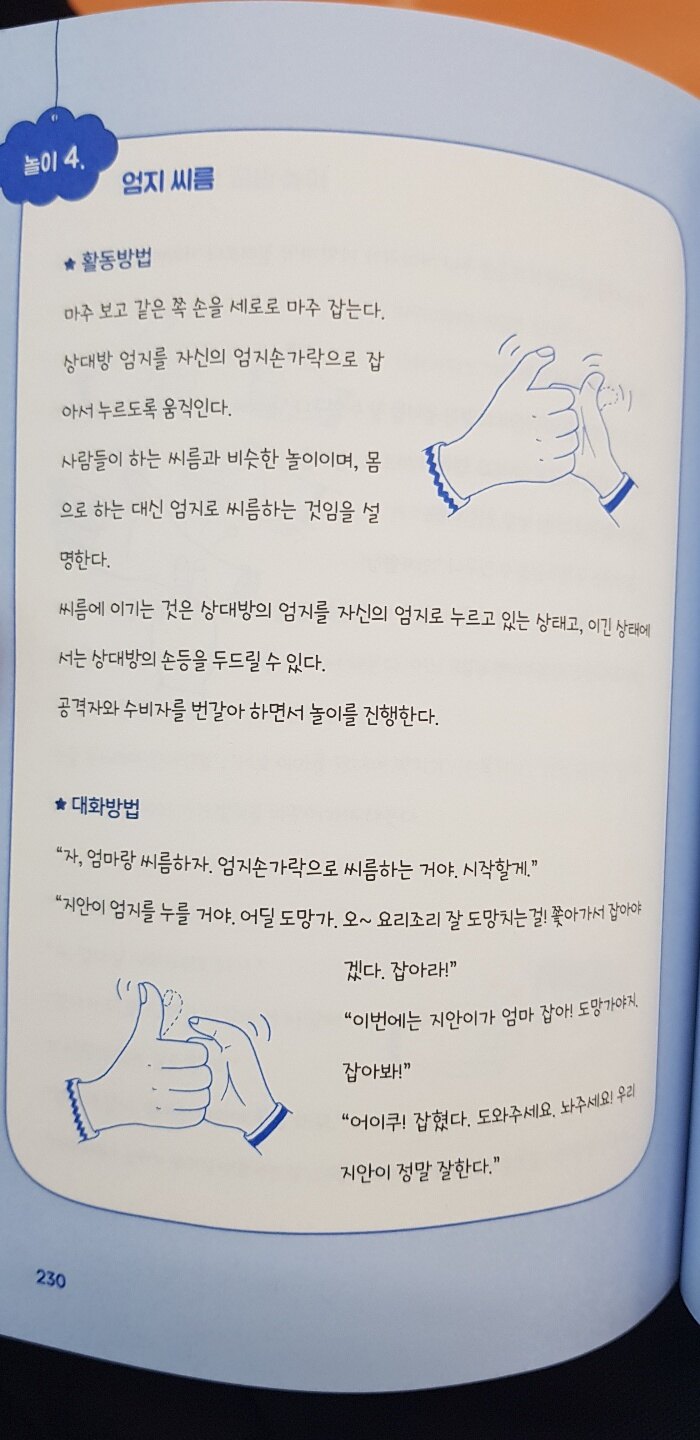 놀이 4.
엄지 씨름
★ 활동방법
마주 보고 같은 쪽 손을 세로로 마주 잡는다.
상대방 엄지를 자신의 엄지손가락으로 잡
아서 누르도록 움직인다.
사람들이 하는 씨름과 비슷한 놀이이며, 몸
으로 하는 대신 엄지로 씨름하는 것임을 설
명한다.
씨름에 이기는 것은 상대방의 엄지를 자신의 엄지로 누르고 있는 상태고, 이긴 상태에
서는 상대방의 손등을 두드릴 수 있다.
공격자와 수비자를 번갈아 하면서 놀이를 진행한다.
★ 대화방법
“자, 엄마랑 씨름하자. 엄지손가락으로 씨름하는 거야. 시작할게.”
“지안이 엄지를 누를 거야. 어딜 도망가. 오~ 요리조리 잘 도망치는걸! 쫓아가서 잡아야
겠다. 잡아라!”
“이번에는 지안이가 엄마 잡아! 도망가야지.
잡아봐!”
“어이쿠! 잡혔다. 도와주세요. 놔주세요! 우리
지안이 정말 잘한다.”
230